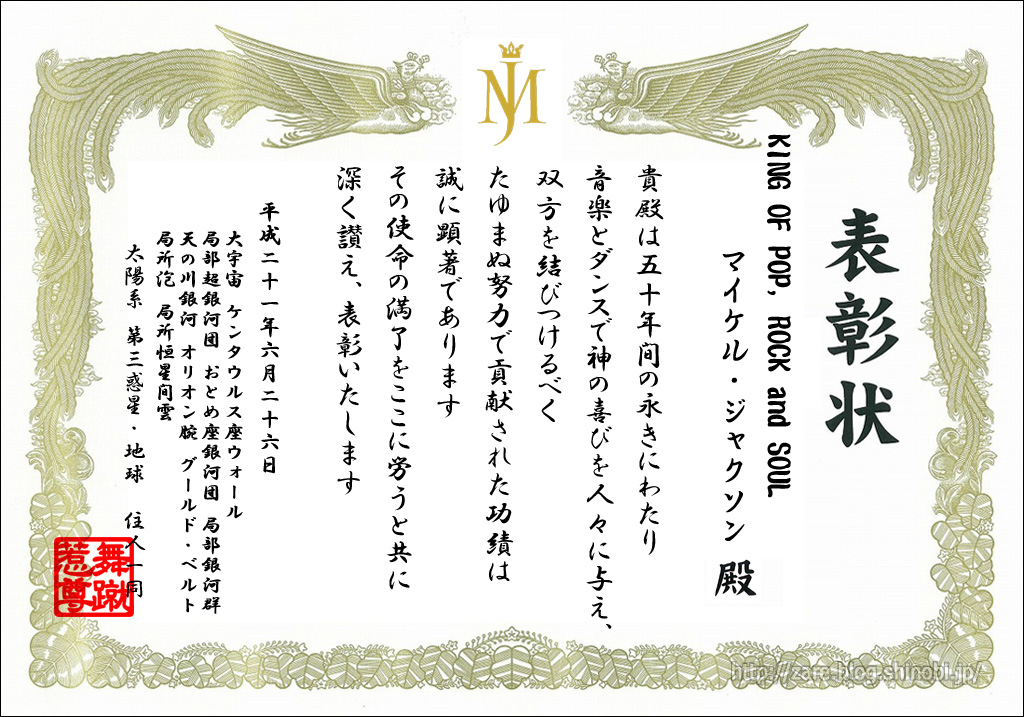 表彰状
KING OF POP, ROCK and SOUL
マイケル・ジャクソン 殿
貴殿は五十年間の永きにわたり
音楽とダンスで神の喜びを人々に与え、
双方を結びつけるべく
たゆまぬ努力で貢献された功績は
誠に顕著であります
その使命の満了をここに労うと共に
深く讃え、表彰いたします
平成二十一年六月二十六日
大宇宙 ケンタウルス座ウォール
局部超銀河団 おとめ座銀河団 局部銀河群
天の川銀河 オリオン腕 グールド・ベルト
局所泡 局所恒星間雲
太陽系 第三惑星・地球 住人一同
舞蹴
惹尊
MJ
http://zara.blog.shinobi.jp/